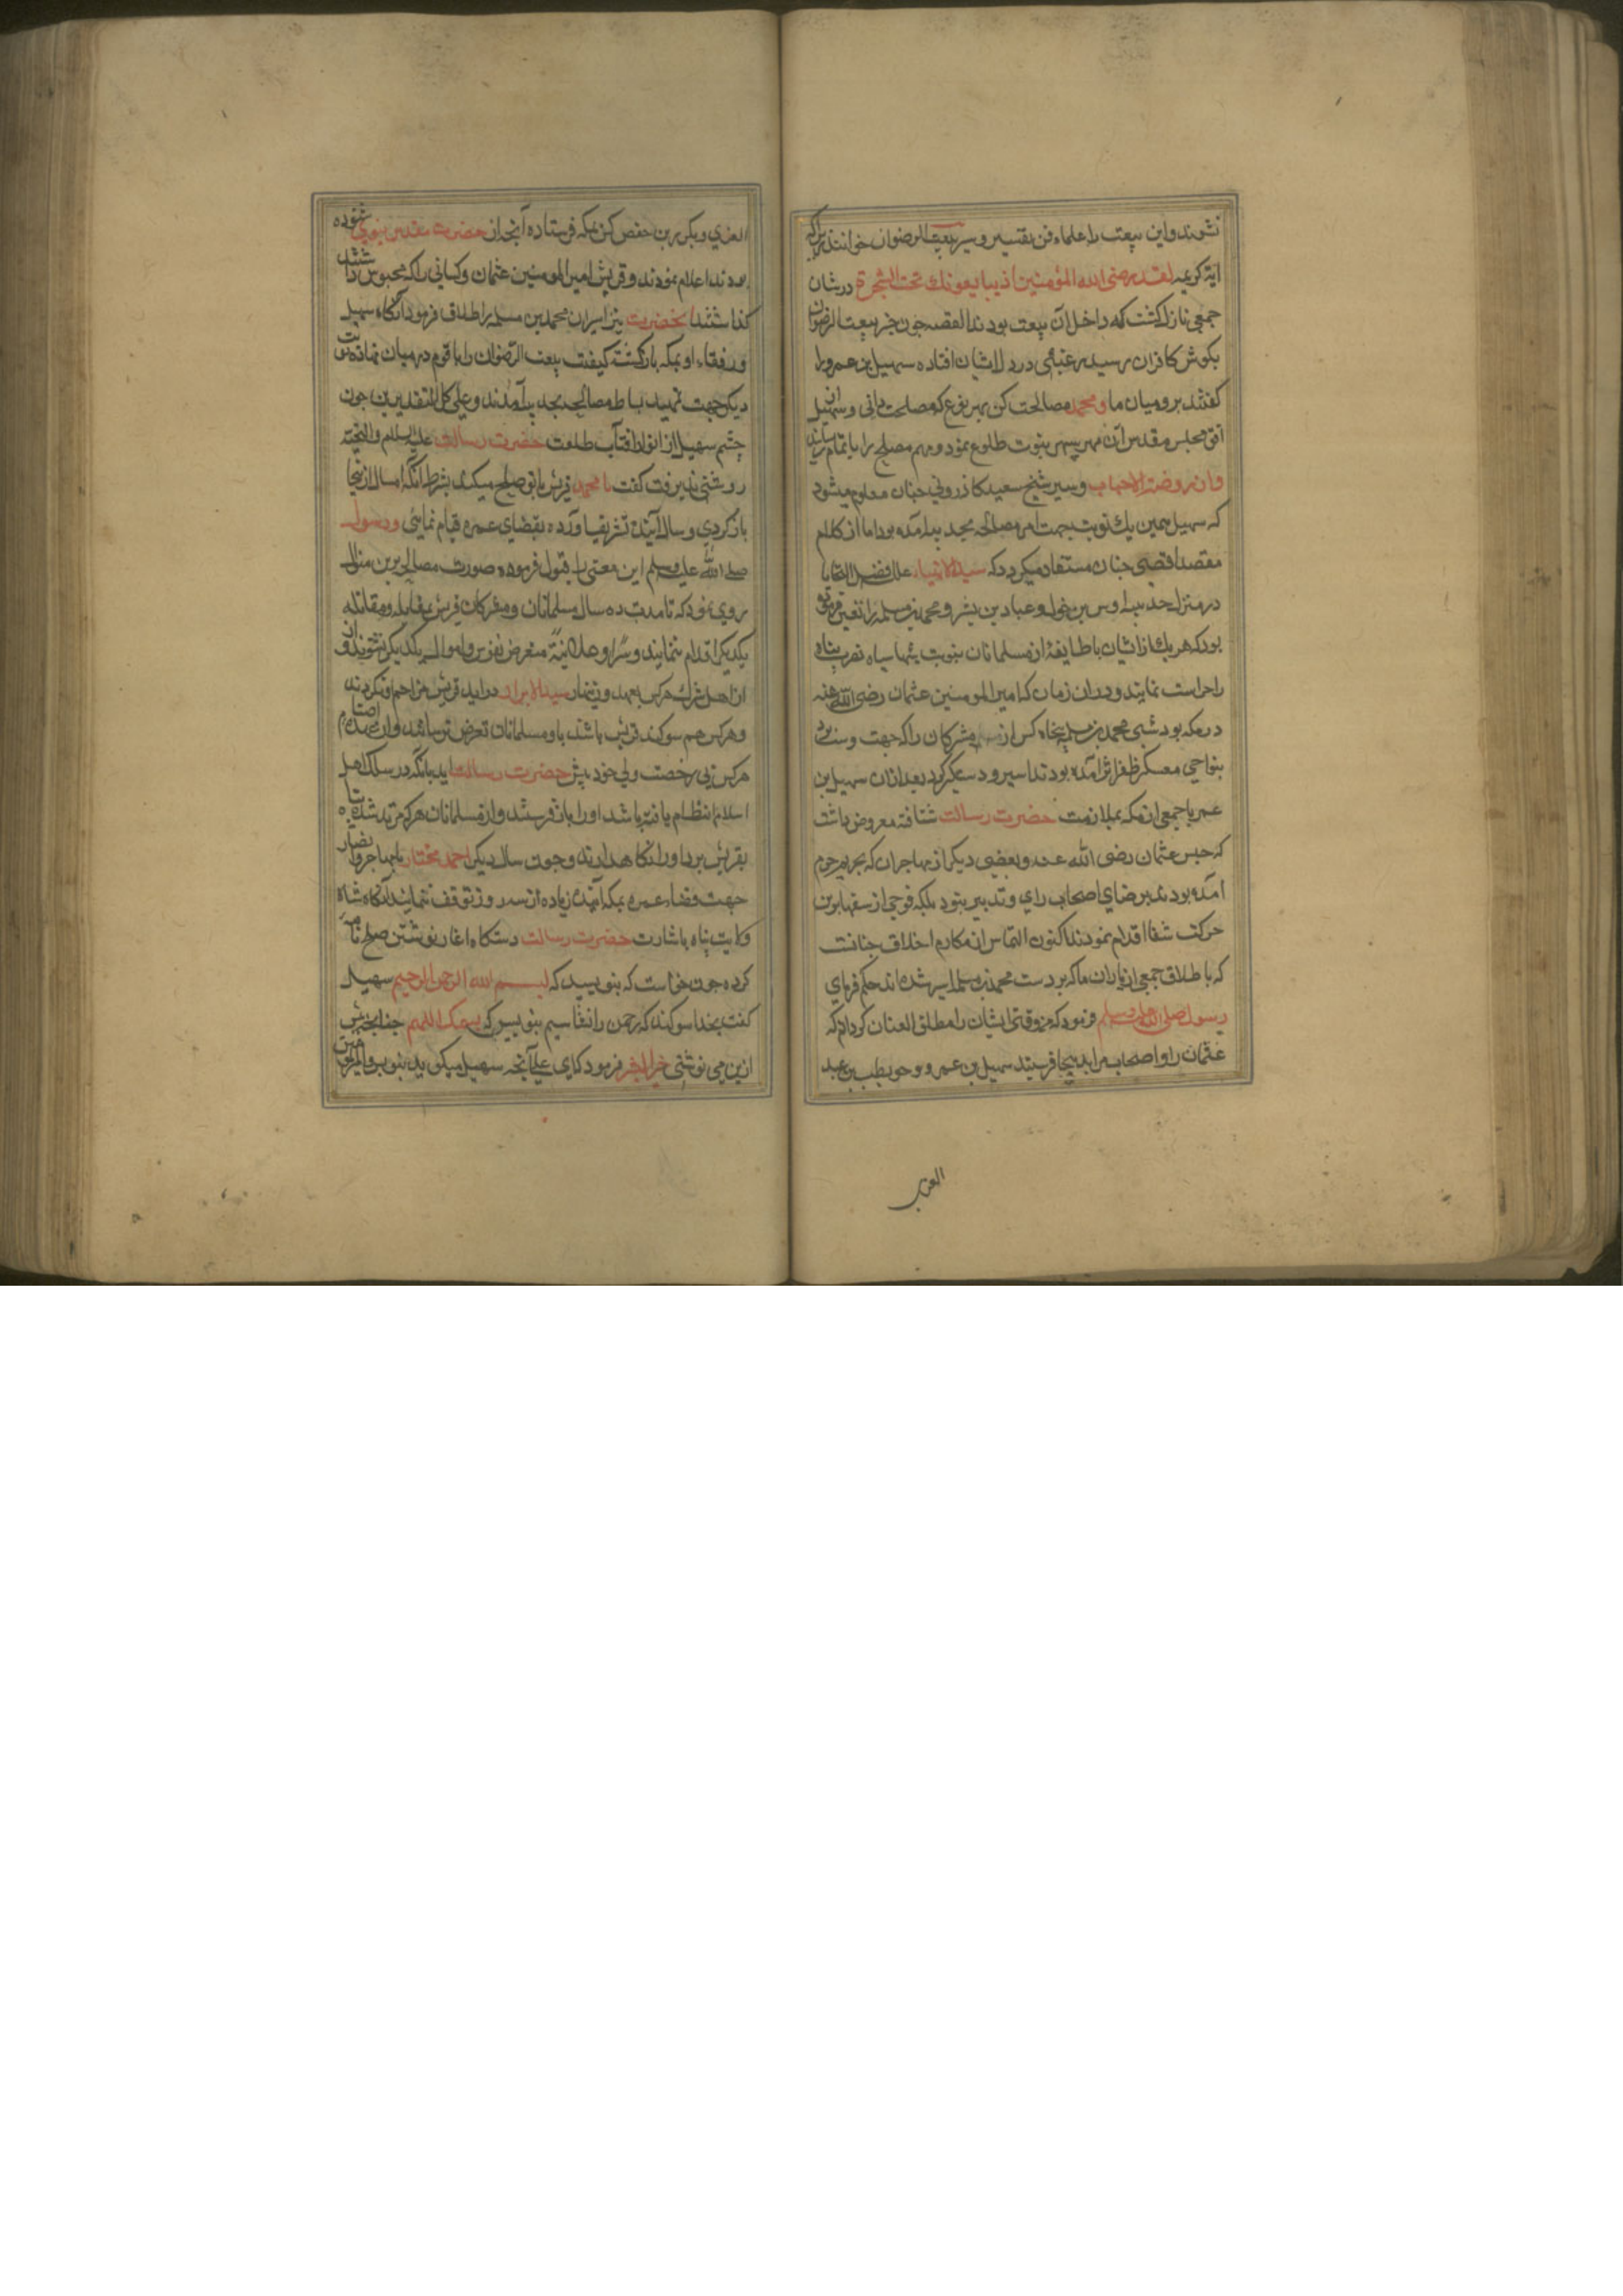 نشوند و این بیعت را علماء فن تفسیر و سیر بیعت الرضوان خوانند زیراکه
آیه کریمه لقد رضی الله المؤمنین اذ یبایعونك تحت الشجرة در شان
جمعی نازل کشت که داخل آن بیعت بودند القصه جون خبر بیعت الرضوان
بکوش کافران رسید رعبی در دل ایشان افتاده سهیل بن عمرو را
کفتند برو میان ما و محمد مصالحت کن بهر نوع که مصلحت دانی و سهیل از
افق مجلس مقدس آن مهر سپهر نبوت طلوع نمود و مهم مصلح را باتمام رسانید
و از روضة الاحباب و سیر شیخ سعید کازرونی جنان معلوم میشود
که سهیل همین یك نوبت بجهت امر مصالحه بحدیبیه آمده بود اما از کلام
مقصد اقصی جنان مستفاد میکردد که سید الانبیاء علیه افضل التحایا
در منزل حدیبیه اوس بن خولی و عباد بن بشر و محمد بن مسلمه را تعین فرموده
بود که هر یك از ایشان با طایفهٔ از مسلمانان بنوبت شبها سپاه نصرت پناه
را حراست نمایند و در ان زمان که امیر المومنین عثمان رضی الله عنه
در مکه بود شبی محمد بن مسلمه پنجاه کس از مشرکان را که جهت
بنواحی معسکر ظفر اثر آمده بودند اسیر و دستکیر کرد بعد از ان سهیل بن
عمر با جمعی از مکه بملازمت حضرت رسالت شتافته معروض داشت
که حبس عثمان رضی الله عنه و بعضی دیکر از مهاجران که بحریم حرم
آمده بودند برضای اصحاب رای و تدبیر نبود بلکه فوجی از سفها برین
حرکت شفا اقدام نمودند اکنون التماس از مکارم اخلاق جنانست
که باطلاق جمعی از یاران ما که بر دست محمد بن مسلمه اسیر شده اند حکم فرمای
رسول صلی الله علیه وسلم فرمود که من وقتی ایشان را مطلق العنان کردانم که
عثمان را و اصحاب مرا بدینجا فرستند سهیل بن عمرو و حویطب بن عبد
العزی
العزی و بکرز بن حفص کس بمکه فرستاده آنجه از حضرت مقدس نبوی شنوده
بودند اعلام نمودند و قریش امیر المومنین عثمان و کسانی را که محبوس داشتند
کذاشتند آنحضرت نیز اسیران محمد بن مسلمه را اطلاق فرمود آنکاه سهیل
و رفقاء او بمکه بازکشته کیفیت بیعت الرضوان را با قوم در میان نهاده نوبت
دیکر جهت تمهید بساط مصالحه بحدیبیه آمدند و علی کل التقدیرین جون
جشم سهیل از انوار افتاب طلعت حضرت رسالت علیه السلام والتحیة
روشنی پذیرفت کفت یا محمد قریش با تو صلح میکند بشرط آنکه امسال از ینجا
باز کردی و سال آینده تشریف آورده بقضای عمره قیام نمائی و رسول
صلی الله علیه وسلم این معنی را قبول فرموده صورت مصالحه برین منوال
روی نمود که تا مدت ده سال مسلمانان و مشرکان قریش بمقابله و مقاتله
یکدیکر اقدام ننمایند و سرا و علانیة متعرض نفوس و اموال یکدیکر نشوند و
از اهل شرك هرکس بعهد و پیمان سید الابرار در اید قریش مزاحم او نکردند
و هرکس هم سوکند قریش باشد باو مسلمانان تعرض نرسانند و از
هرکس بی رخصت ولی خود پیش حضرت رسالت اید بانکه در سلك اهل
اسلام انتظام یافته باشد او را باز فرستند و از مسلمانان هرکه مرتد شده پناه
بقریش برد او را نکاه ندارند و جون سال دیکر احمد مختار با مهاجر و انصار
جهت قضاء عمره بمکه آیند زیاده از سه روز توقف ننمایند آنکاه شاه
ولایت پناه باشارت حضرت رسالت دستکاه اغاز نوشتن صلح نامه
کرده جون خواست که بنویسد که بسم الله الرحمن الرحیم سهیل
کفت بخدا سوکند که رحمن را نشناسیم بنویس که بسمك اللهم جنانجه پیش
ازین می نوشتی خیر البشر فرمود که ای علی آنجه سهیل میکوید بنویس و امیر